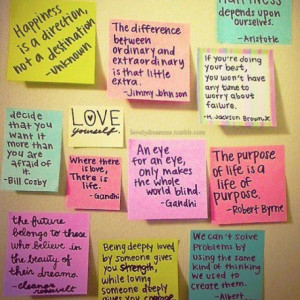 Happiness
is a direction,
not a destination
-unknown
The difference
between
ordinary and
extraordinary
is that little
extra.
-Jimmy Johnson
depends upon
ourselves.
-Aristotle
If you're doing
your best,
you won't have
any time to
worry about
failure.
-H. Jackson Brown, Jr.
decide
that you
want it
more than
you are
afraid of
it.
-Bill Cosby
LOVE
yourself.
Where there
is love,
There is
life.
-Gandhi
An eye
for an eye,
only makes
the whole
world blind.
-Gandhi
The purpose
of life is a
life of
purpose.
-Robert Byrne
the future
belongs to those
who believe in
the beauty of
their dreams.
-eleanor
roosevelt
Being deeply loved
by someone gives
you strength,
while loving
someone deeply
gives you courage
We can't solve
Problems by
using the same
kind of thinking
we used to
create them.
-Albert